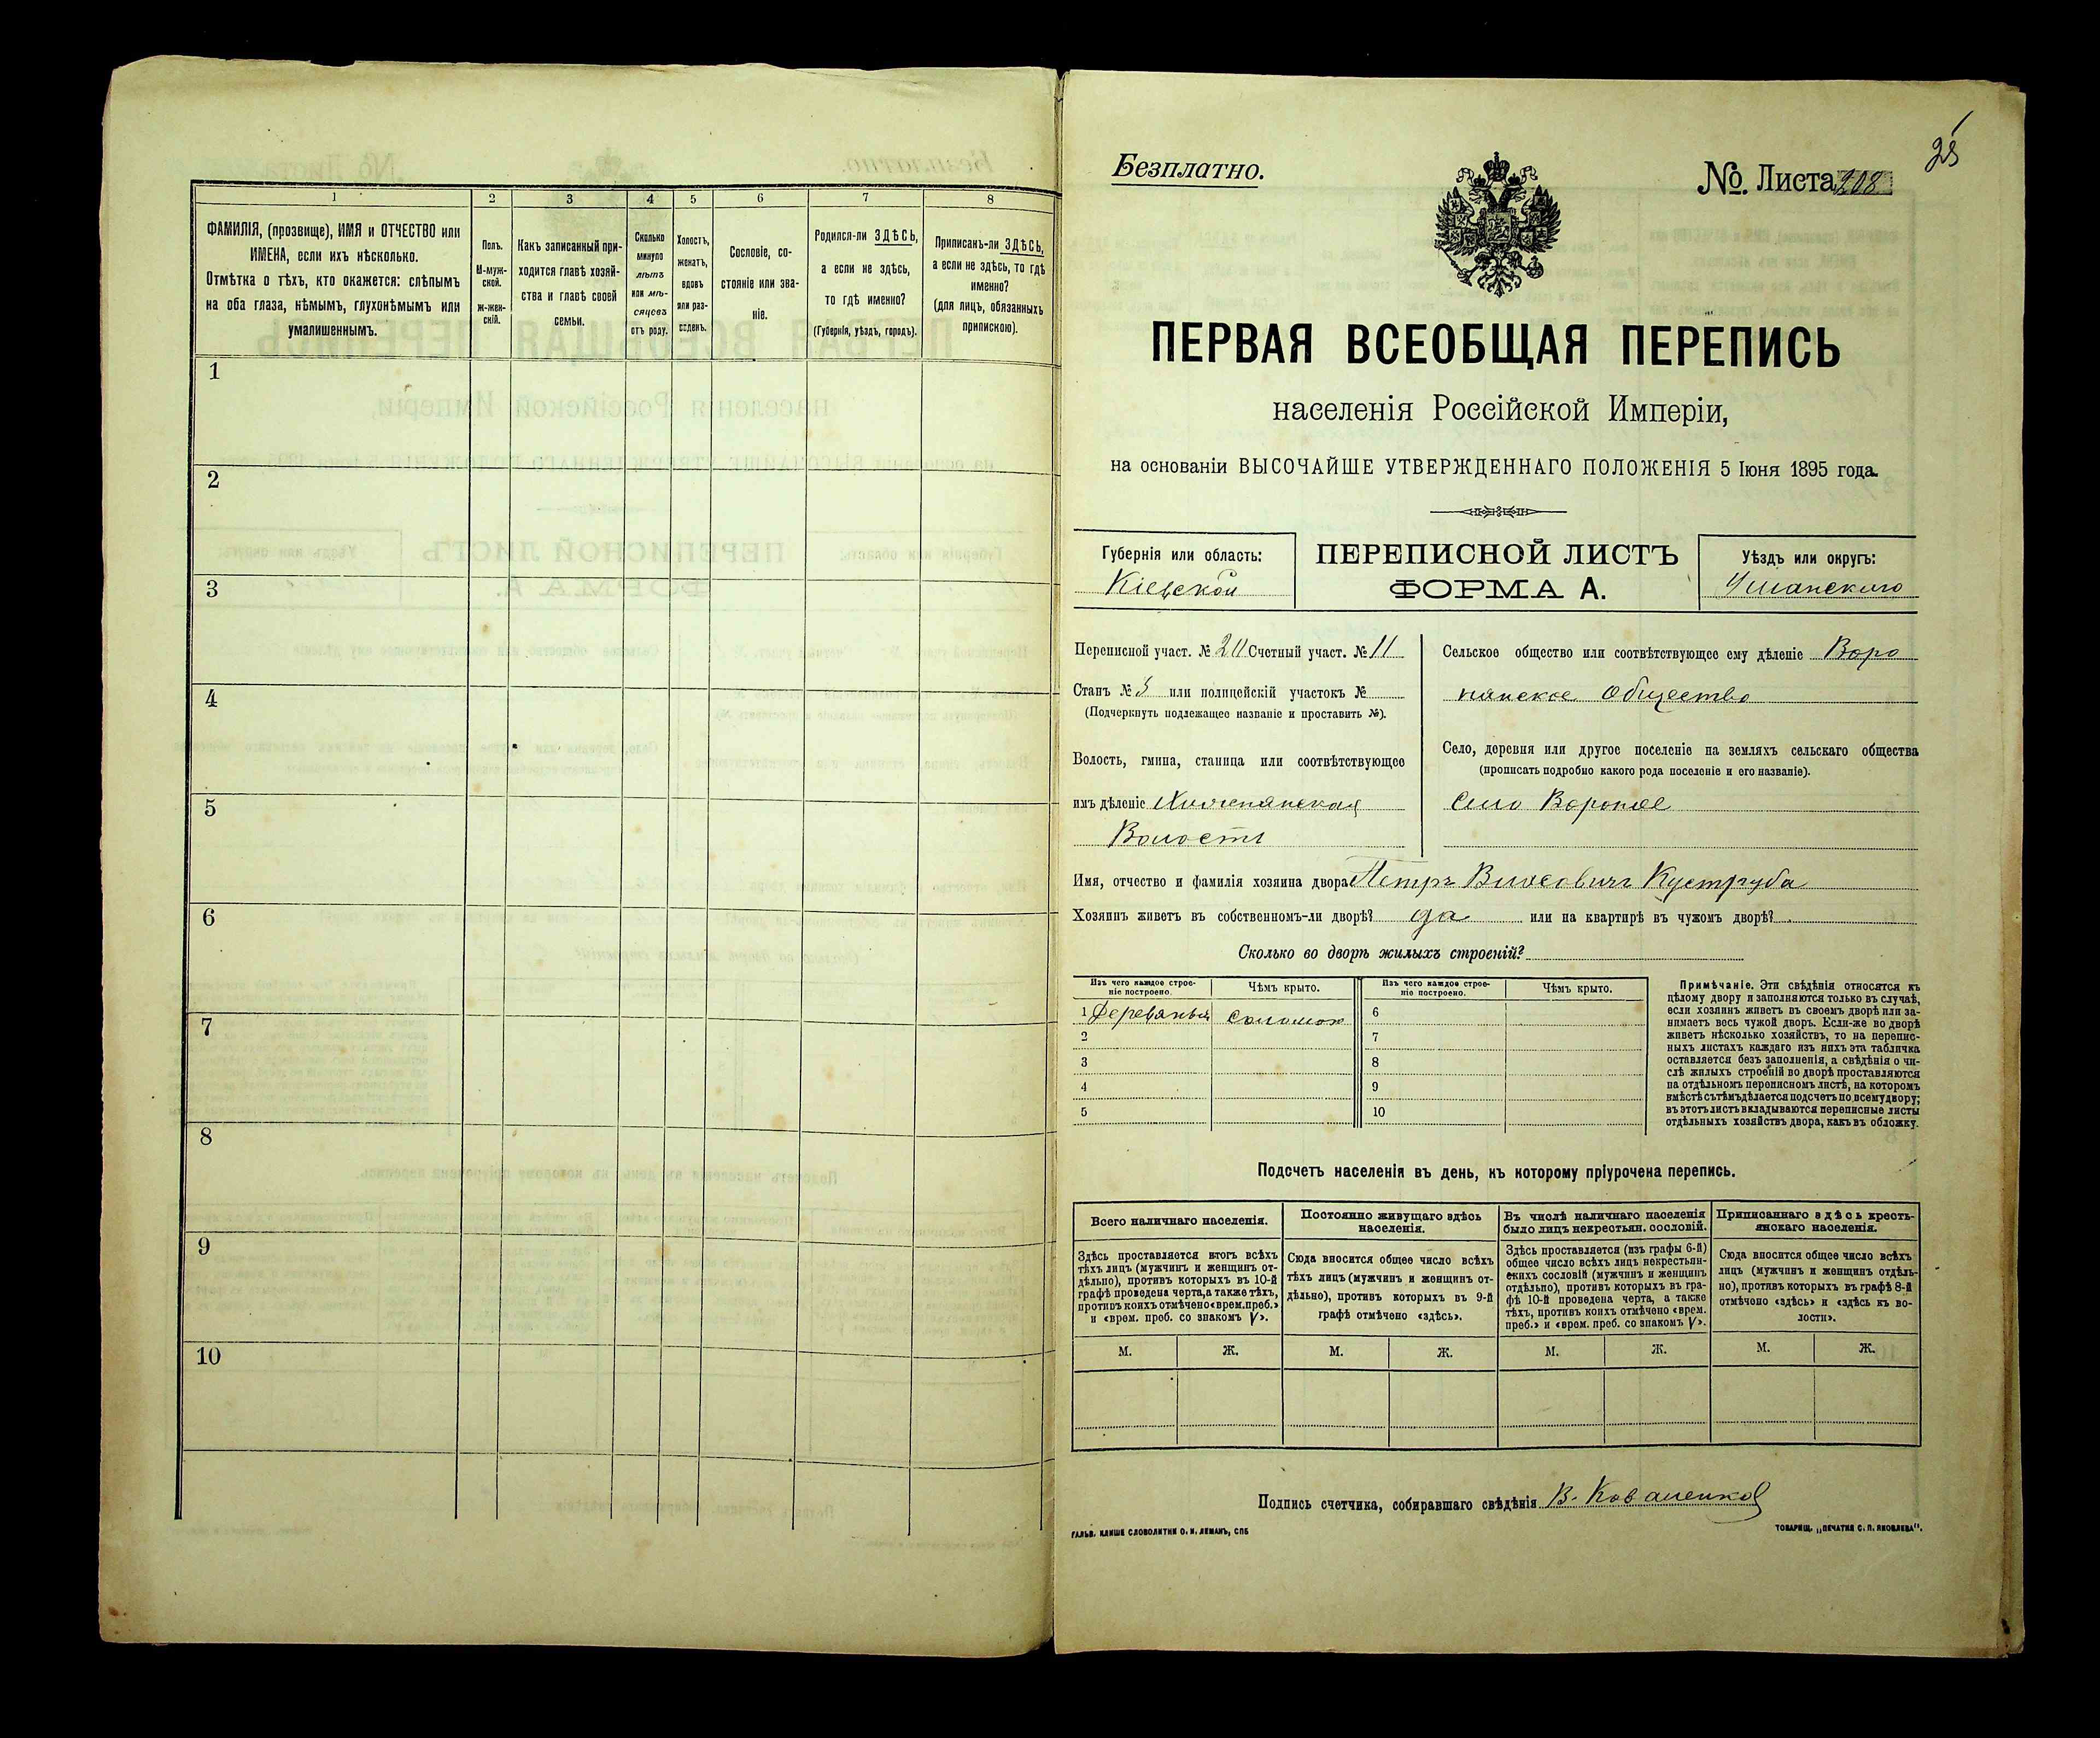 1
2
3
4
5
6
7
8
ФАМИЛІЯ, (прозвище), ИМЯ и ОТЧЕСТВО или
ИМЕНА, если ихъ нѣсколько.
Отмѣтка о тѣхъ, кто окажется: слѣпымъ
на оба глаза, нѣмымъ, глухонѣмымъ или
умалишеннымъ.
Полъ.
М-муж-
ской.
Ж-жен-
скій.
Какъ записанный при-
ходится главѣ хозяй-
ства и главѣ своей
семьи.
Сколько
минуло
лѣтъ
или мѣ-
сяцевъ
отъ роду.
Холостъ,
женатъ,
вдовъ
или раз-
веденъ.
Сословіе, со-
стояніе или зва-
ніе.
Родился-ли ЗДѢСЬ,
а если не здѣсь,
то гдѣ именно?
(Губернія, уѣздъ, городъ).
Приписанъ-ли ЗДѢСЬ,
а если не здѣсь, то гдѣ
именно?
(для лицъ, обязанныхъ
припискою).
1
2
3
4
5
6
7
8
9
10
25
Безплатно.
№. Листа 208
ПЕРВАЯ ВСЕОБЩАЯ ПЕРЕПИСЬ
населенія Россійской Имперіи,
на основаніи ВЫСОЧАЙШЕ УТВЕРЖДЕННАГО ПОЛОЖЕНІЯ 5 Іюня 1895 года.
Губернія или область:
Кіевской
ПЕРЕПИСНОЙ ЛИСТЪ
ФОРМА А.
Уѣздъ или округъ:
Уманского
Переписной участ. № 20 Счетный участ. № 11
Станъ № 3 или полицейскій участокъ №
(Подчеркнуть подлежащее названіе и проставить №).
Волость, гмина, станица или соотвѣтствующее
имъ дѣленіе
Волость
Сельское общество или соотвѣтствующее ему дѣленіе Воро
нянское общество
Село, деревня или другое поселеніе на земляхъ сельскаго общества
(прописать подробно какого рода поселеніе и его названіе).
село Вороное
Имя, отчество и фамилія хозяина двора Петръ Куструба
Хозяинъ живетъ въ собственномъ-ли дворѣ? да или на квартирѣ въ чужомъ дворѣ?
Сколько во дворѣ жилыхъ строеній?
Изъ чего каждое строе-
ніе построено.
Чѣмъ крыто.
Изъ чего каждое строе-
ніе построено.
Чѣмъ крыто.
1 Деревянья соломою
2
3
4
5
6
7
8
9
10
Примѣчаніе. Эти свѣдѣнія относятся къ
цѣлому двору и заполняются только въ случаѣ,
если хозяинъ живетъ въ своемъ дворѣ или за-
нимаетъ весь чужой дворъ. Если-же во дворѣ
живетъ нѣсколько хозяйствъ, то на перепис-
ныхъ листахъ каждаго изъ нихъ эта табличка
оставляется безъ заполненія, а свѣдѣнія о чи-
слѣ жилыхъ строеній во дворѣ проставляются
на отдѣльномъ переписномъ листѣ, на которомъ
вмѣстѣ съ тѣмъ дѣлается подсчетъ по всему двору;
въ этотъ листъ вкладываются переписные листы
отдѣльныхъ хозяйствъ двора, какъ въ обложку.
Подсчетъ населенія въ день, къ которому пріурочена перепись.
Всего наличнаго населенія.
Здѣсь проставляется итогъ всѣхъ
тѣхъ лицъ (мужчинъ и женщинъ от-
дѣльно), противъ которыхъ въ 10-й
графѣ проведена черта, а также тѣхъ,
противъ коихъ отмѣчено «врем. преб.»
и «врем. преб. со знакомъ V».
Постоянно живущаго здѣсь
населенія.
Сюда вносится общее число всѣхъ
тѣхъ лицъ (мужчинъ и женщинъ от-
дѣльно), противъ которыхъ въ 9-й
графѣ отмѣчено «здѣсь».
Въ числѣ наличнаго населенія
было лицъ некрестьян. сословій.
Здѣсь проставляется (изъ графы 6-й)
общее число всѣхъ лицъ некрестьян-
скихъ сословій (мужчинъ и женщинъ
отдѣльно), противъ которыхъ въ гра-
фѣ 10-й проведена черта, а также
тѣхъ, противъ коихъ отмѣчено «врем.
преб.» и «врем. преб. со знакомъ V».
Приписаннаго здѣсь кресть-
янскаго населенія.
Сюда вносится общее число всѣхъ
лицъ (мужчинъ и женщинъ отдѣль-
но), противъ которыхъ въ графѣ 8-й
отмѣчено «здѣсь» и «здѣсь къ во-
лости».
М.
Ж.
М.
Ж.
М.
Ж.
М.
Ж.
Подпись счетчика, собиравшаго свѣдѣнія В. Коваленков
ГАЛЬВ. КЛИШЕ СЛОВОЛИТНИ О. И. ЛЕМАНЪ, СПБ
ТОВАРИЩ. „ПЕЧАТНЯ С. П. ЯКОВЛЕВА".